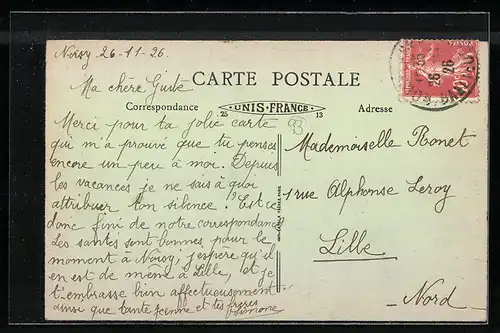 Noisy 26-11-26
Ma chère Guite
CARTE POSTALE
Correspondance
UNIS-FRANCE
25 13
Adresse
93
Merci pour ta jolie carte
qui m'a prouvé que tu penses
encore un peu à moi. Depuis
les vacances je ne sais à quoi
attribuer ton silence ! Est-ce
donc fini de notre correspondance
Les santés sont bonnes pour le
moment à Noisy, j'espère qu'il
en est de même à Lille, et je
t'embrasse bien affectueusement
ainsi que tante et tes frères
Simone
Mademoiselle Bonet
1 rue Alphonse Leroy
Lille
Nord
26